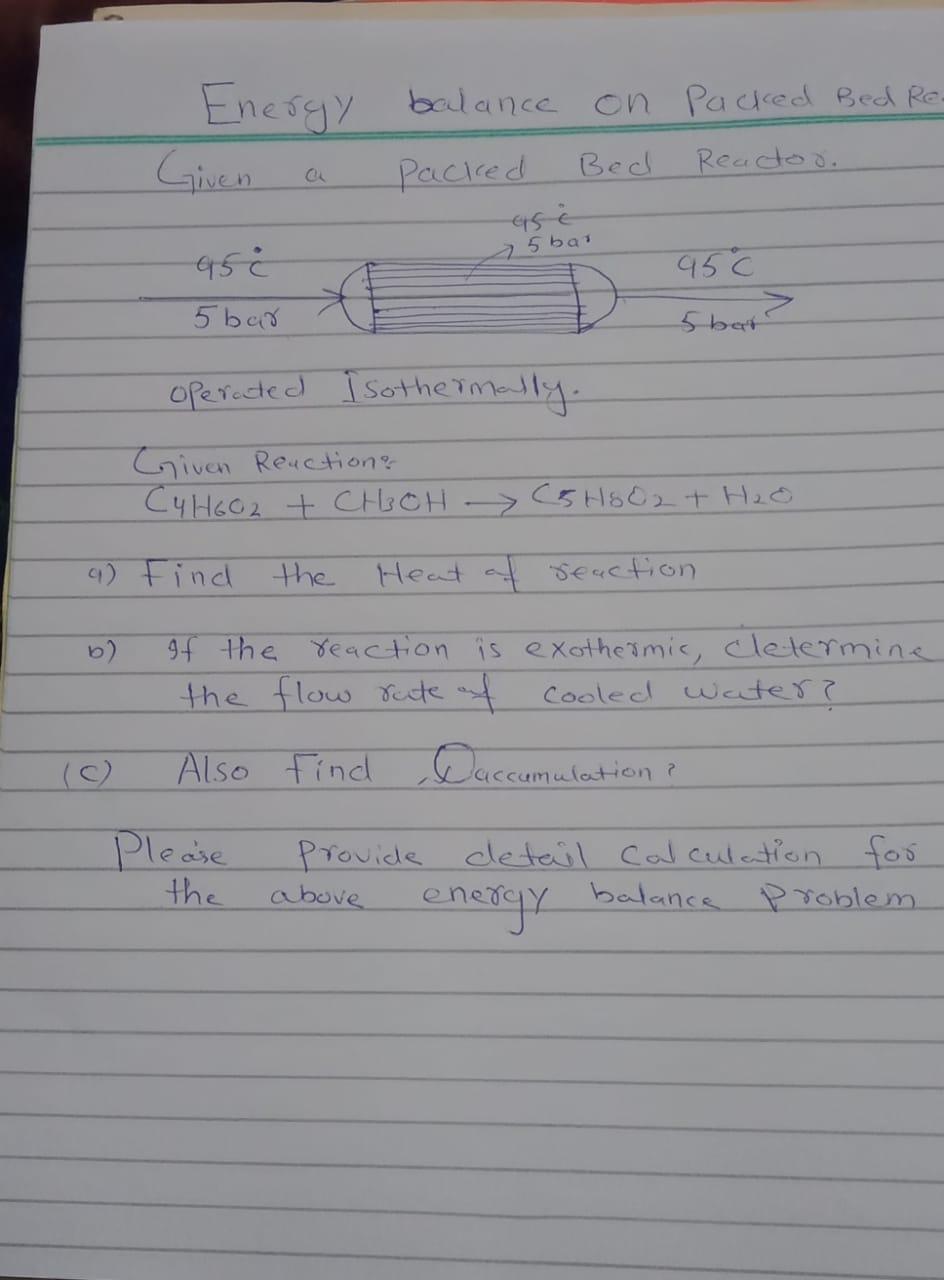 Energy balance on Packed Bed Re
Given a Packed Bed Reactor.
95°C
5 bar
95°C
5 bar
95°C
5 bar
Operated Isothermally.
Given Reaction:
C4H6O2 + CH3OH → C5H8O2 + H2O
a) Find the Heat of reaction
b) If the reaction is exothermic, determine
the flow rate of cooled water?
(c) Also find Qaccumulation?
Please Provide detail Calculation for
the above energy balance Problem